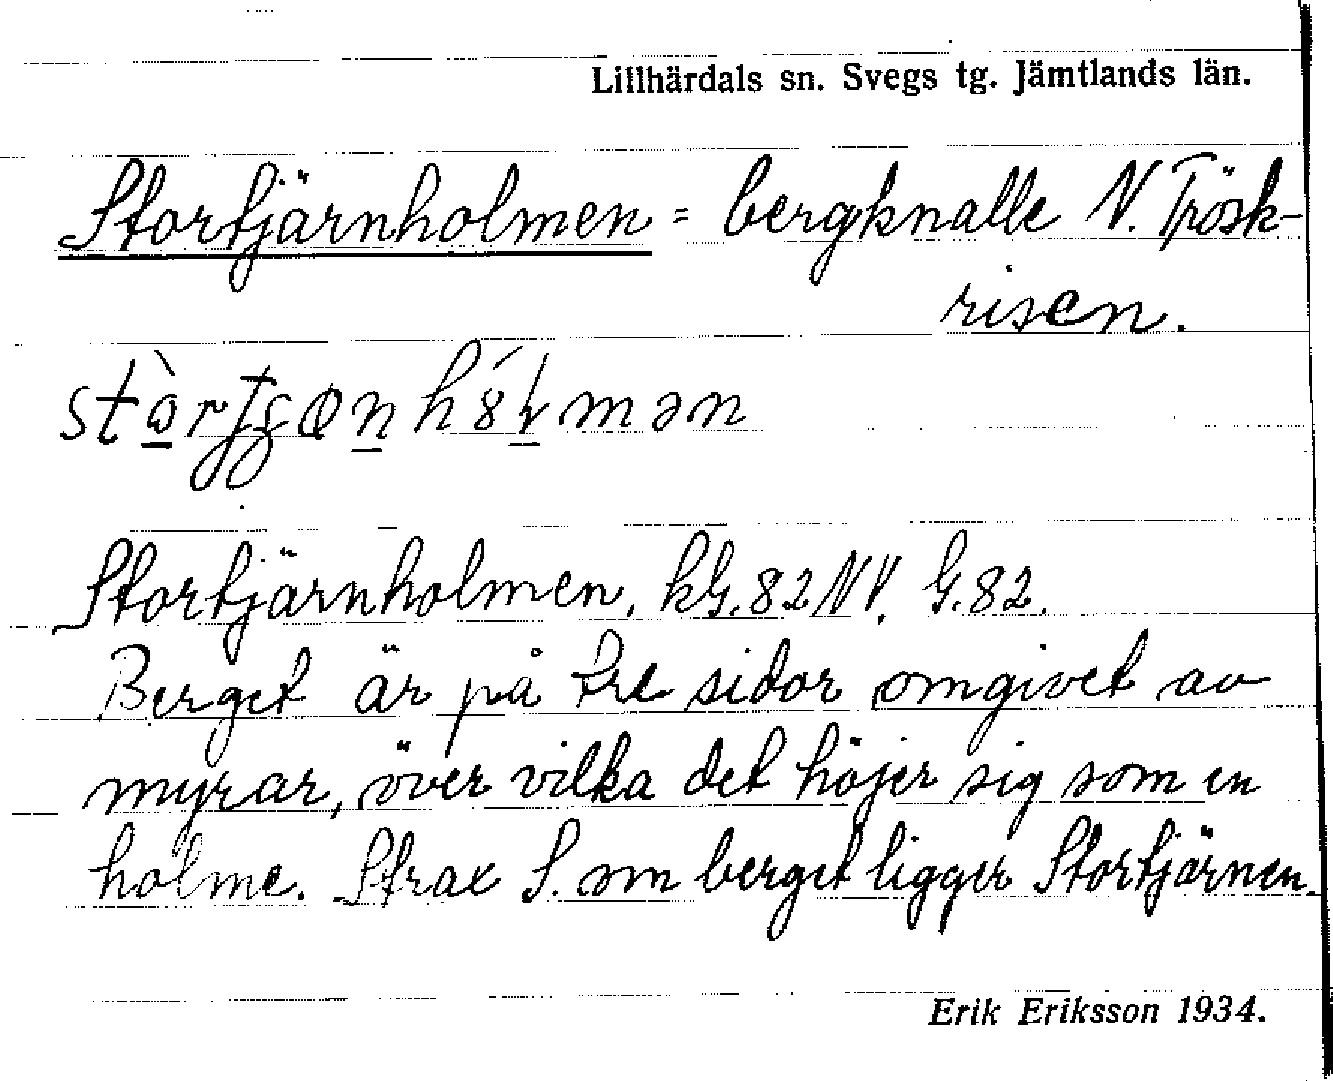 Lillhärdals sn. Svegs tg. Jämtlands län.
Stortjärnholmen = bergknalle N. Trösk-
risen.
Stortjärnholmen. kG. 82 NV. G. 82.
Berget är på tre sidor omgivet av
myrar, över vilka det höjer sig som en
holme. Strax S. om berget ligger Stortjärnen.
Erik Eriksson 1934.